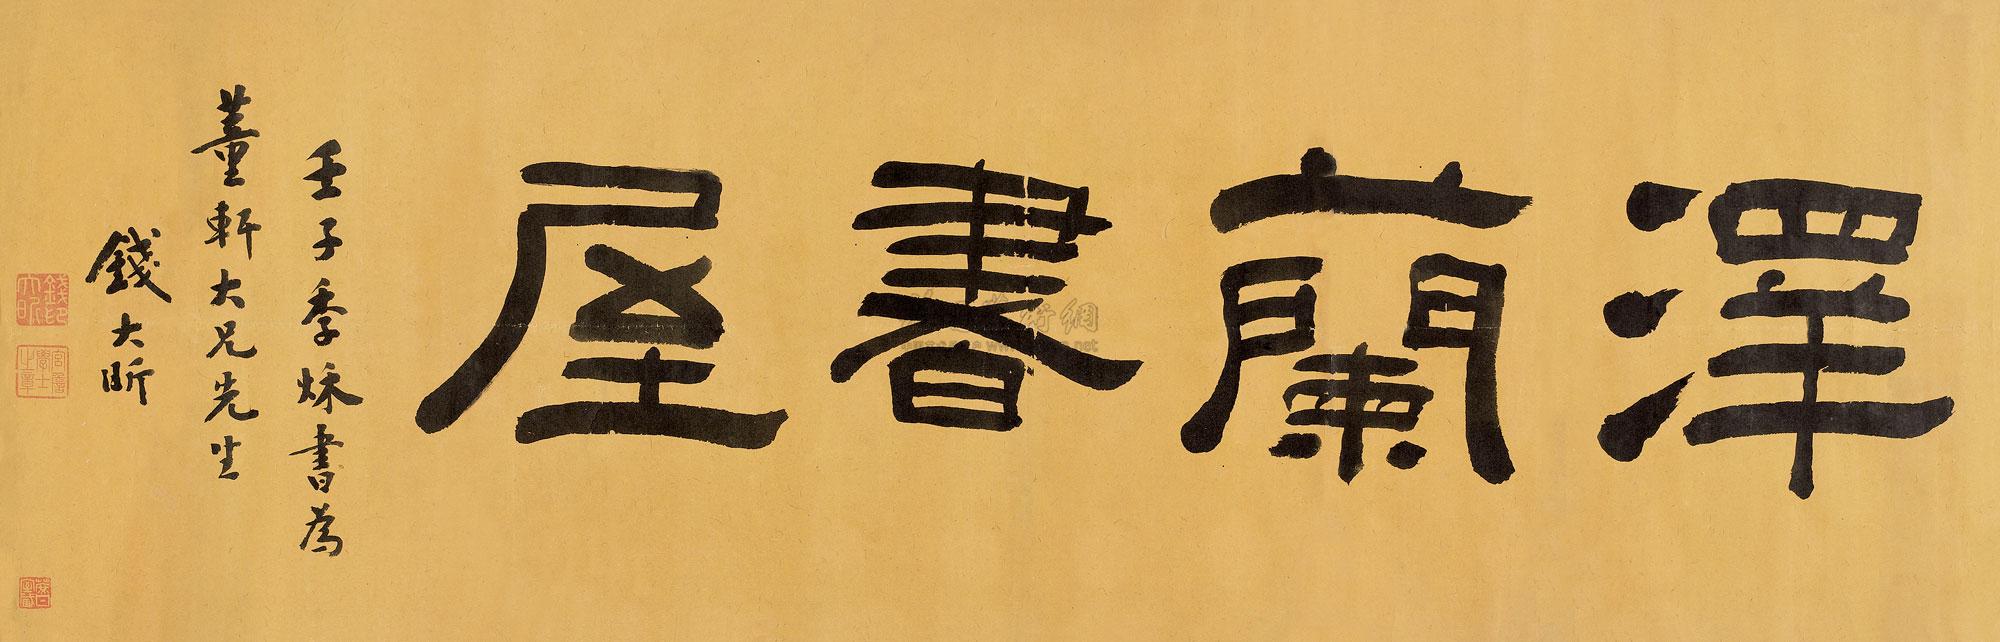 澤蘭書屋
壬子季秌書為
堇軒大兄先生
錢大昕
錢印大昕
宮詹學士之章